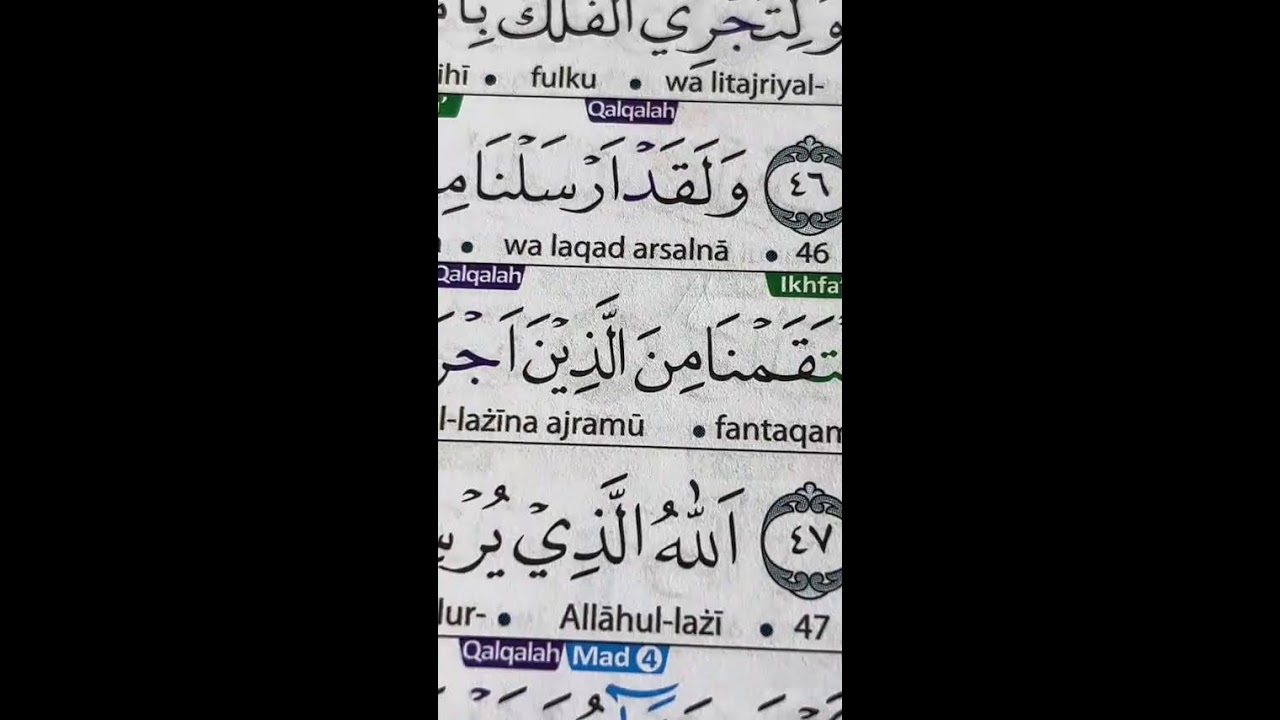 وَلِتَجْرِيَ الْفُلْكُ
ihī • fulku • wa litajriyal-
Qalqalah
٤٦ وَلَقَدْ اَرْسَلْنَا
• wa laqad arsalnā • 46
Qalqalah Ikhfa'
مِنَ الَّذِيْنَ
l-lażīna ajramū • fantaqam
٤٧ اَللّٰهُ الَّذِيْ
lur- • Allāhul-lażī • 47
Qalqalah Mad 4